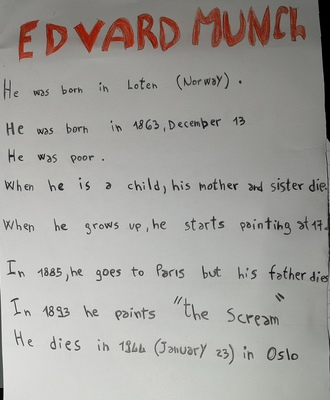 EDVARD MUNCH
He was born in Loten (Norway).
He was born in 1863, December 13
He was poor.
When he is a child, his mother and sister die.
When he grows up, he starts painting at 17.
In 1885, he goes to Paris but his father dies
In 1893 he paints "the Scream"
He dies in 1944 (January 23) in Oslo